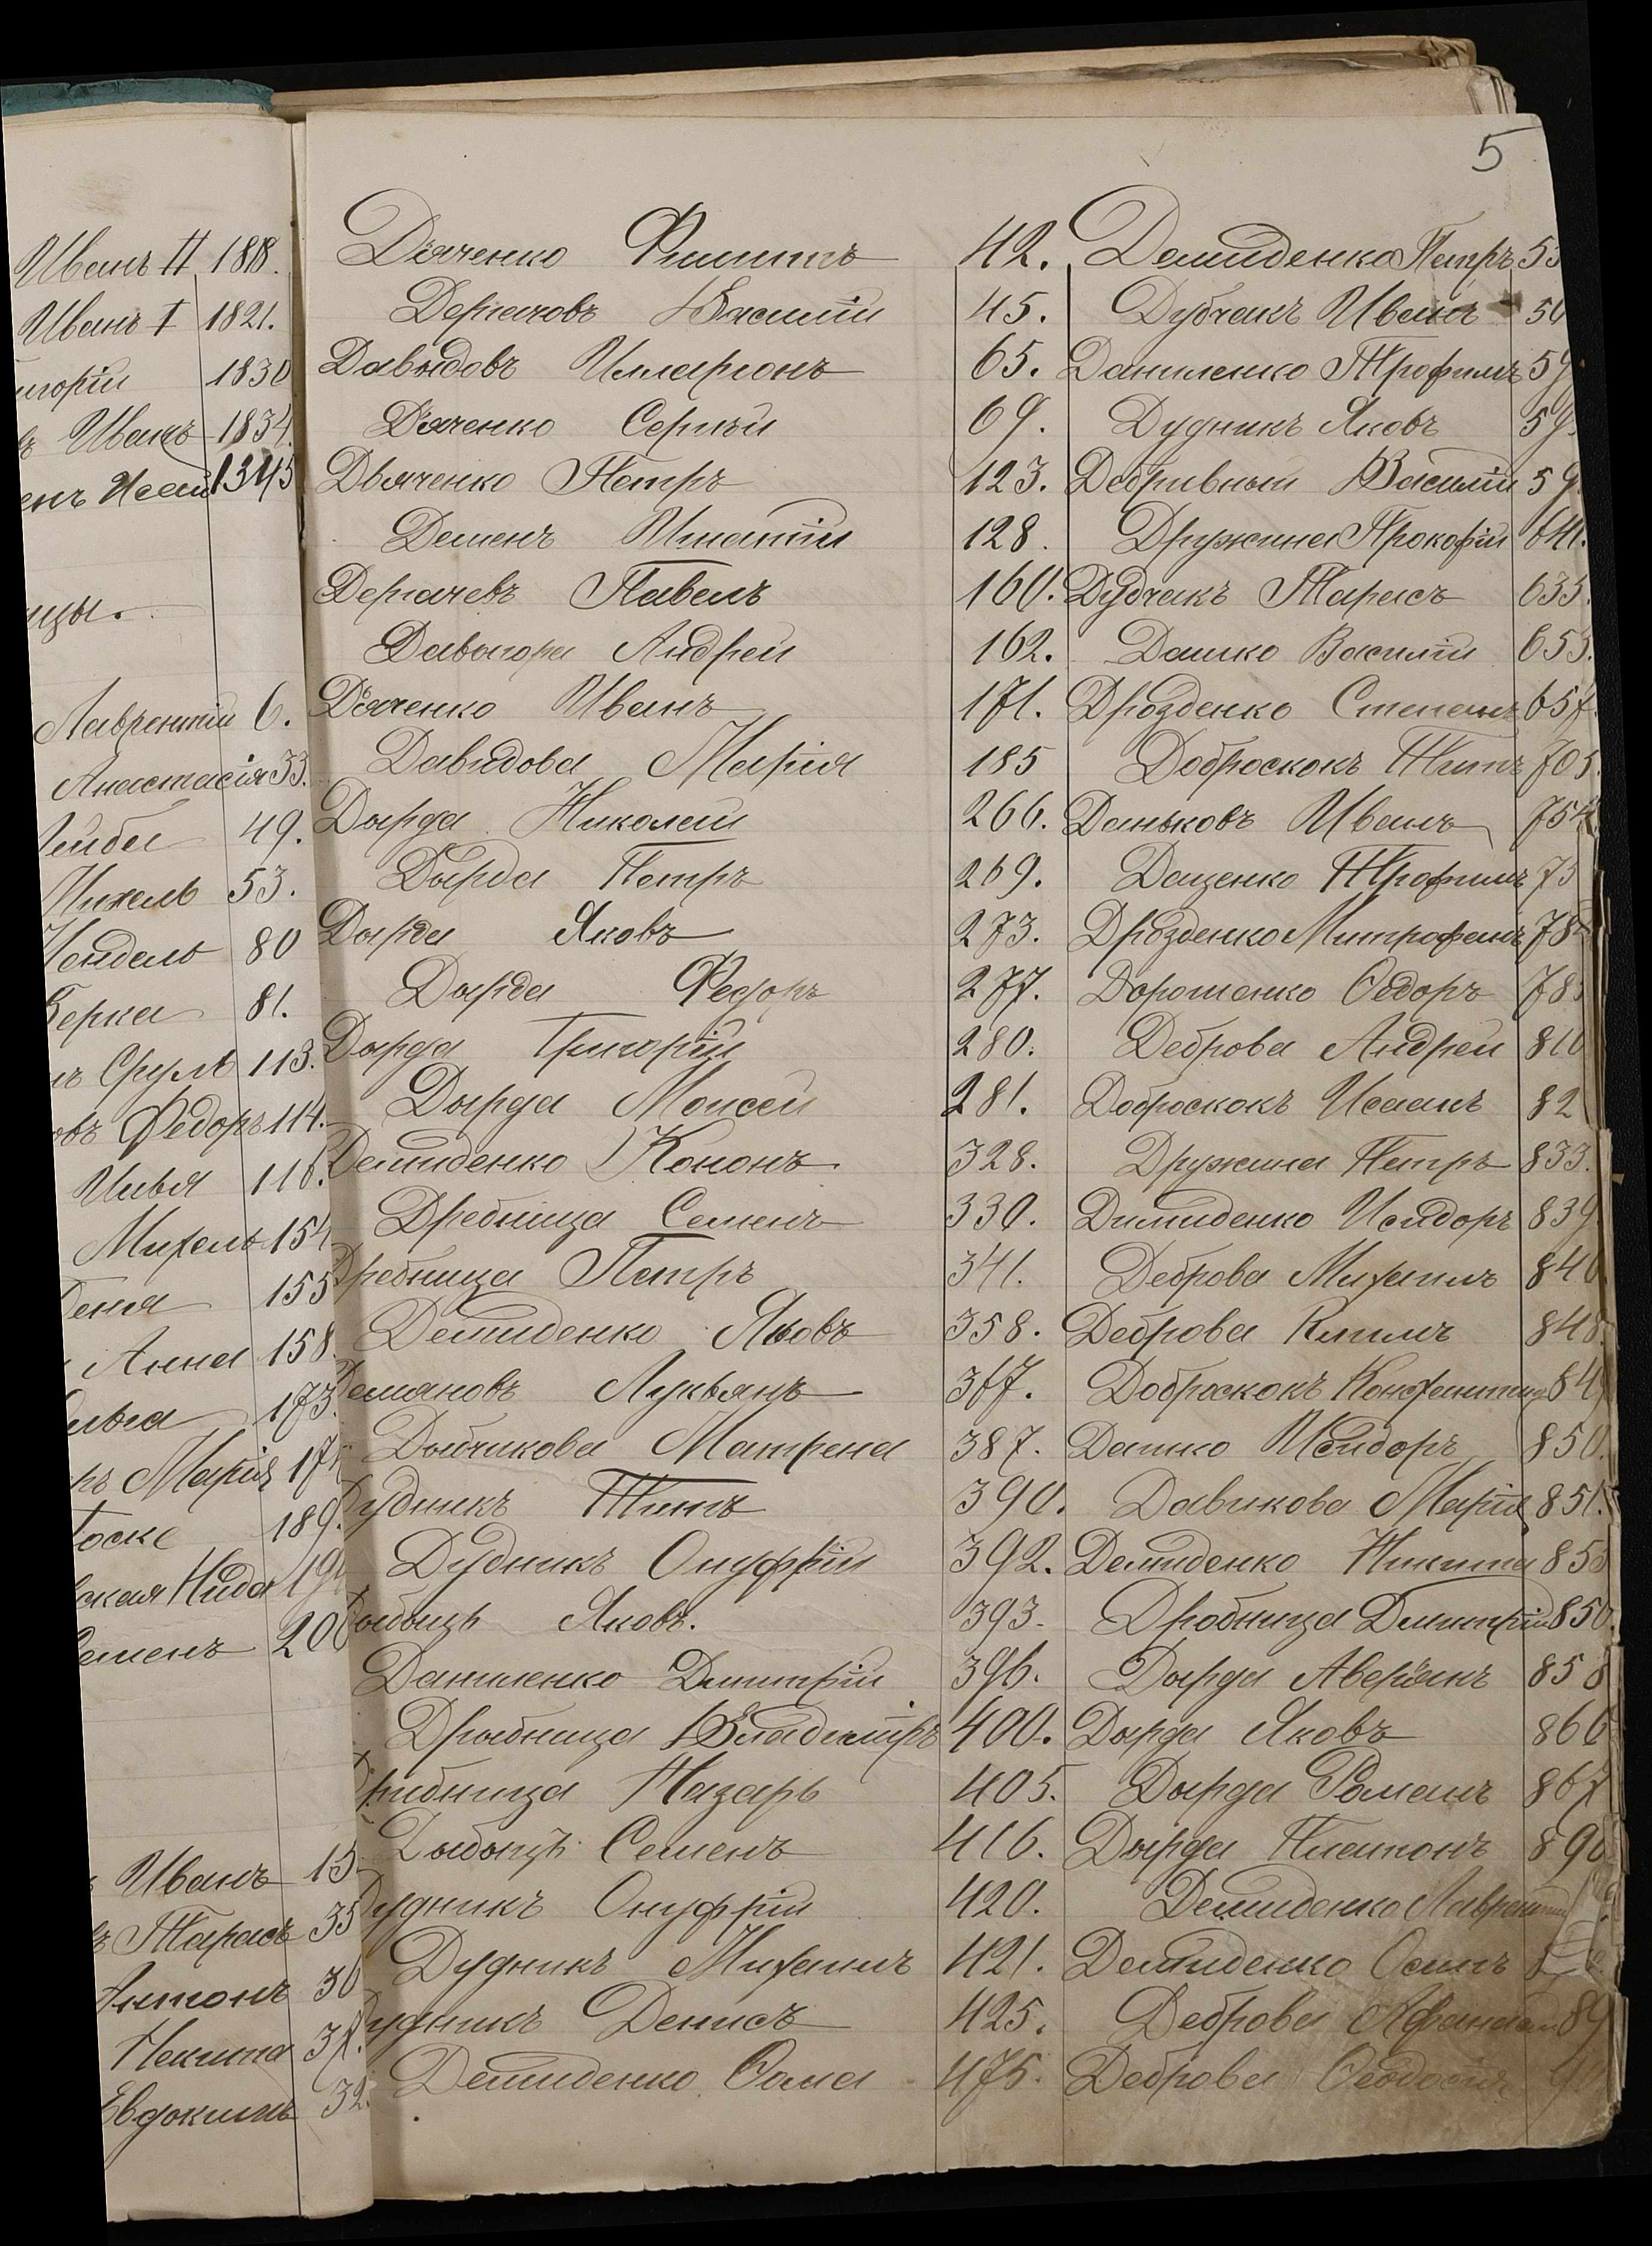 5
Иванъ II 1818.
Иванъ I 1821.
игорій 1830
Иванъ 1834.
1345
ицы.
Лаврентій 6.
Анастасія 33.
Лейба 49.
Михель 53.
Мендель 80
Берка 81.
Сруль 113.
овъ Федоръ 114.
Илья 116.
Михель 154
Беня 155
Анна 158.
173.
Марія 17
189.
ская Нида 19
Семенъ 200
Иванъ 15
Тарасъ 35
Антонъ 30
Никита 37.
Евдокимъ 32.
Дяченко Филиппъ 42.
Дергачовъ Василій 45.
Давыдовъ Илларіонъ 65.
Дяченко Сергѣй 69.
Дьяченко Петръ 123.
Деменъ Игнатій 128.
Дергачевъ Павелъ 160.
Давогора Андрей 162.
Дяченко Иванъ 171.
Давидова Марія 185
Дырда Николай 266.
Дырда Петръ 269.
Дырда Яковъ 273.
Дырда Федоръ 277.
Дырда Григорій 280.
Дырда Моисей 281.
Демиденко Кононъ 328.
Дребница Семенъ 330.
Дребница Петръ 341.
Демиденко Яковъ 358.
Демяновъ Лукьянъ 367.
Дойчикова Матрена 387.
Дудникъ Титъ 390.
Дудникъ Онуфрій 392.
Яковъ. 393.
Даниленко Дмитрій 396.
Дрыбница Владиміръ 400.
Дрибница Назарь 405.
Семенъ 416.
Дудникъ Онуфрій 420.
Дудникъ Михаилъ 421.
Дудникъ Денисъ 425.
Демиденко Фома 475.
Демиденко Петръ 53
Дубчакъ Иванъ 56
Даниленко Трофимъ 59
Дудникъ Яковъ 59.
Добривный Василій 59
Дружина Прокофій 641.
Дубчакъ Тарасъ 635.
Дашко Василій 653.
Дрозденко Степанъ 657.
Доброскокъ Титъ 705.
Даньковъ Иванъ 754
Дащенко Трофимъ 75
Дрозденко Митрофанъ 78
Дорошенко Ѳедоръ 783
Деброва Андрей 810
Доброскокъ Исаакъ 82
Дружина Петръ 833.
Димиденко Исидоръ 839.
Деброва Михаилъ 840
Деброва Климъ 848.
Доброскокъ Константинъ 849
Дашко Исидоръ 850.
Давикова Марія 851.
Демиденко Никита 853
Дробница Дмитрій 850.
Дырда Аверіянъ 858
Дырда Яковъ 866
Дырда Романъ 867
Дырда Платонъ 890
Демиденко Лаврентій
Демиденко Осипъ
Деброва Афанасій 89
Деброва Ѳеодосія